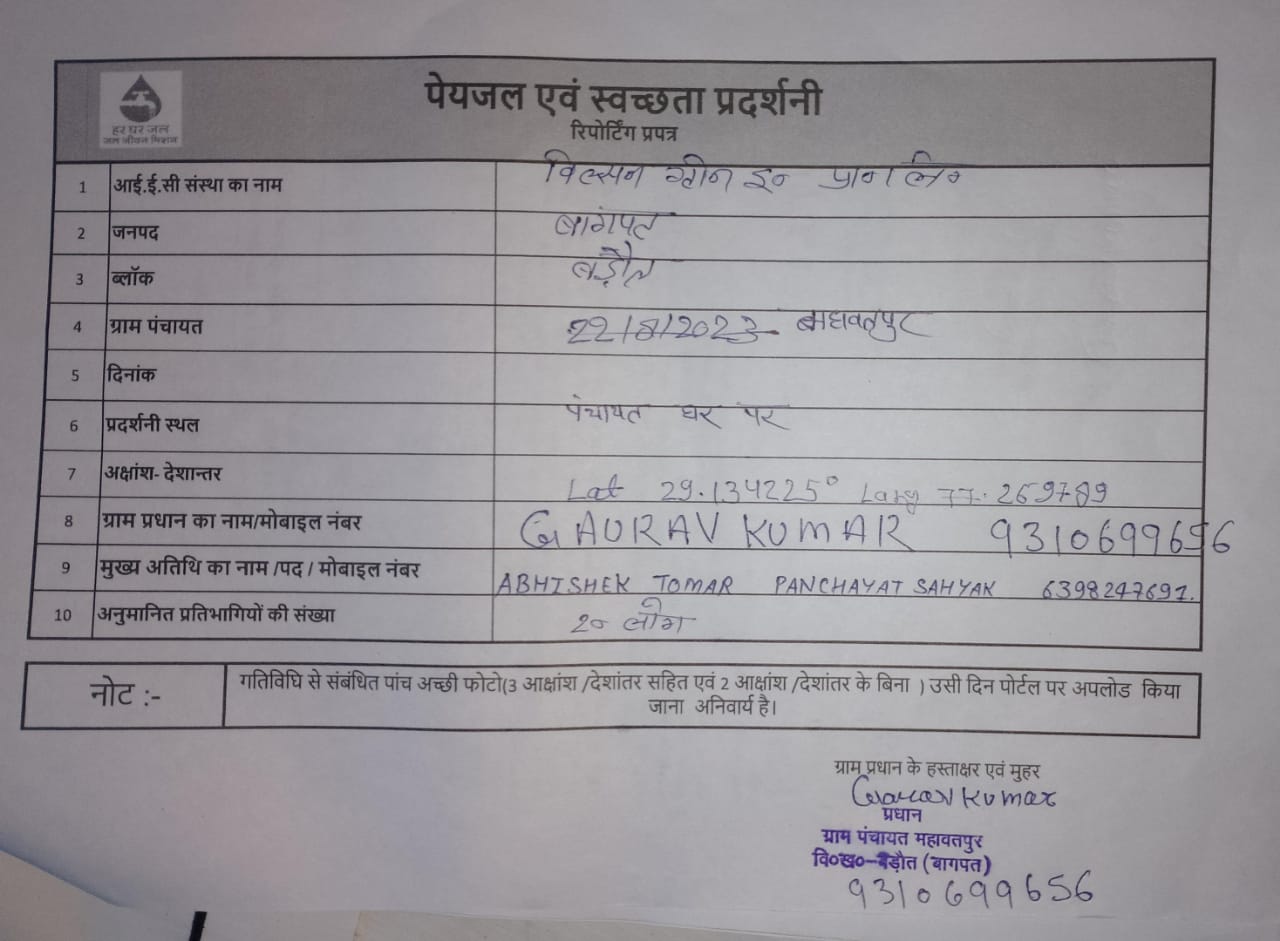 पेयजल एवं स्वच्छता प्रदर्शनी
हर घर जल
जल जीवन मिशन
रिपोर्टिंग प्रपत्र
1 आई.ई.सी संस्था का नाम विल्सन ग्रीन इ० प्रा० लि०
2 जनपद बागपत
3 ब्लॉक बड़ौत
4 ग्राम पंचायत 22/8/2023
5 दिनांक
6 प्रदर्शनी स्थल पंचायत घर पर
7 अक्षांश- देशान्तर Lat 29.134225° Long 77.269789
8 ग्राम प्रधान का नाम/मोबाइल नंबर GAURAV KUMAR 9310699656
9 मुख्य अतिथि का नाम /पद / मोबाइल नंबर ABHISHEK TOMAR PANCHAYAT SAHYAK 6398247691.
10 अनुमानित प्रतिभागियों की संख्या २० लोग
नोट :- गतिविधि से संबंधित पांच अच्छी फोटो(3 आक्षांश /देशांतर सहित एवं 2 आक्षांश /देशांतर के बिना ) उसी दिन पोर्टल पर अपलोड किया
जाना अनिवार्य है।
ग्राम प्रधान के हस्ताक्षर एवं मुहर
Gaurav Kumar
प्रधान
ग्राम पंचायत महावतपुर
वि०ख०-बड़ौत (बागपत)
9310699656